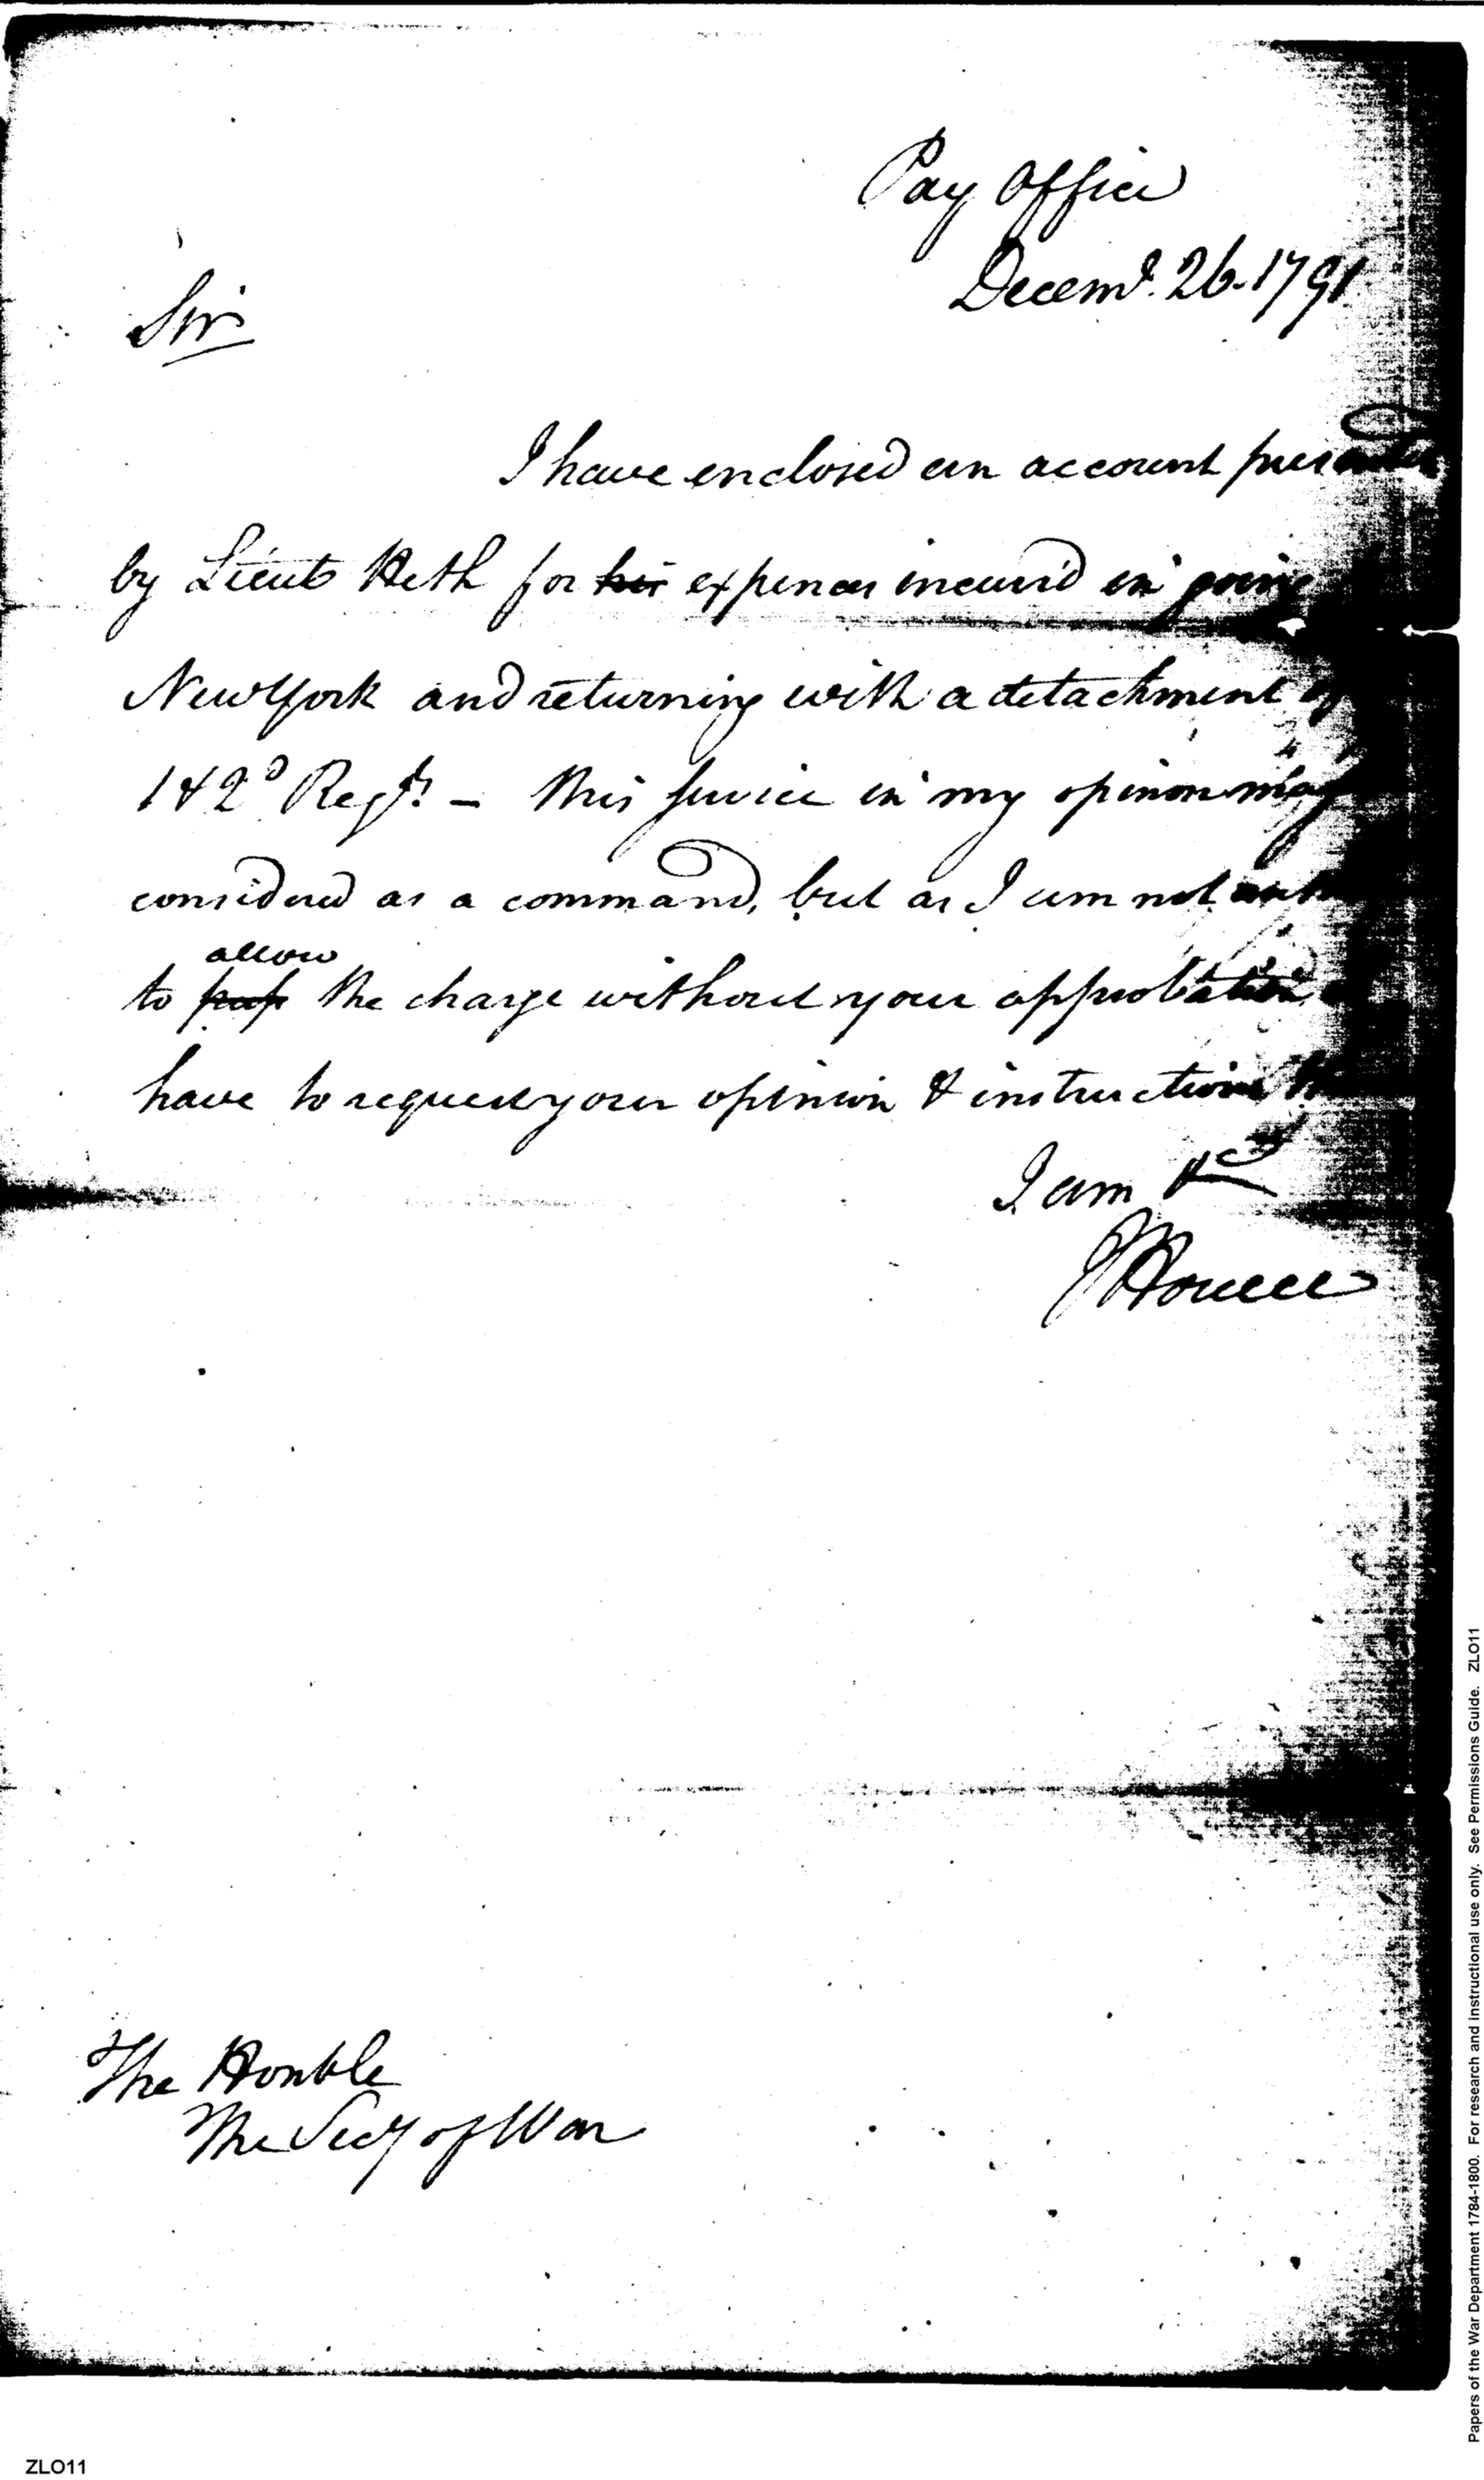 Pay Office
Decemr. 26. 1791
Sir
I have enclosed an account
by Lieut Heth for his expences incurr'd in going
New York and returning with a detachment of
1 & 2d Regts. — this service in my opinion may
considered as a command, but as I am not
allow
to pass the charge without your approbation,
have to request your opinion & instructions
I am &c
J Howell
The Honble
The Secy of War
Papers of the War Department 1784-1800. For research and instructional use only. See Permissions Guide. ZLO11
ZLO11